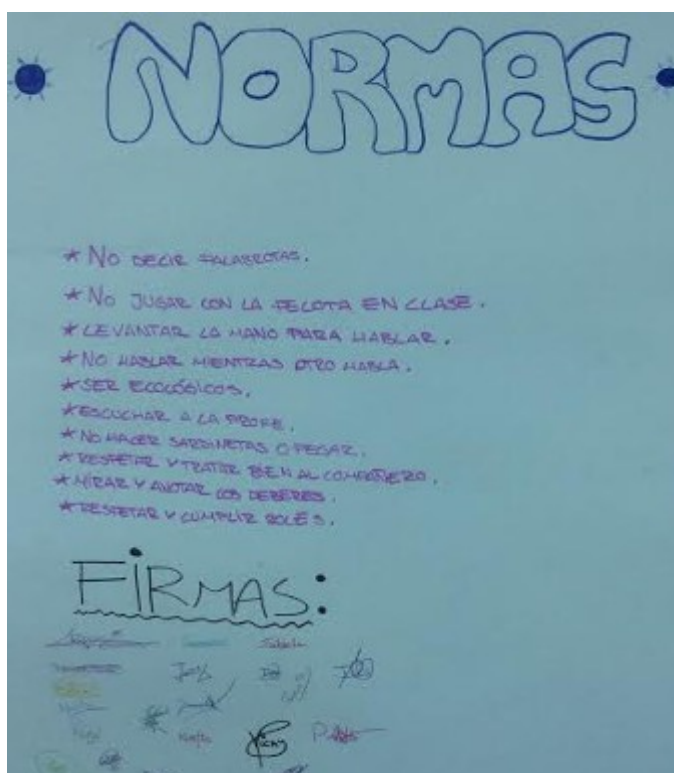 NORMAS
* No DECIR PALABROTAS.
* No JUGAR CON LA PELOTA EN CLASE.
* LEVANTAR LA MANO PARA HABLAR.
* NO HABLAR MIENTRAS OTRO HABLA.
* SER ECOLÓGICOS.
* ESCUCHAR A LA PROFE.
* NO HACER SARDINETAS O PEGAR.
* RESPETAR Y TRATAR BIEN AL COMPAÑERO.
* MIRAR Y ANOTAR LOS DEBERES.
* RESPETAR Y CUMPLIR ROLES.
FIRMAS:
Vicky